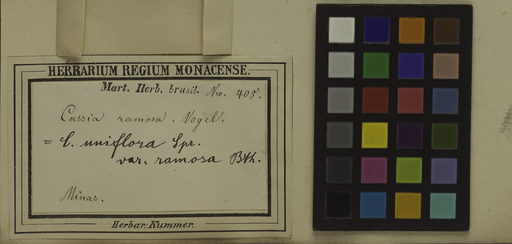 HERBARIUM REGIUM MONACENSE.
Mart. Herb. brasil. Nro. 405.
Cassia ramosa. Vogel.
= C. uniflora Spr.
var. ramosa Bth.
Minas.
Herbar. Kummer.